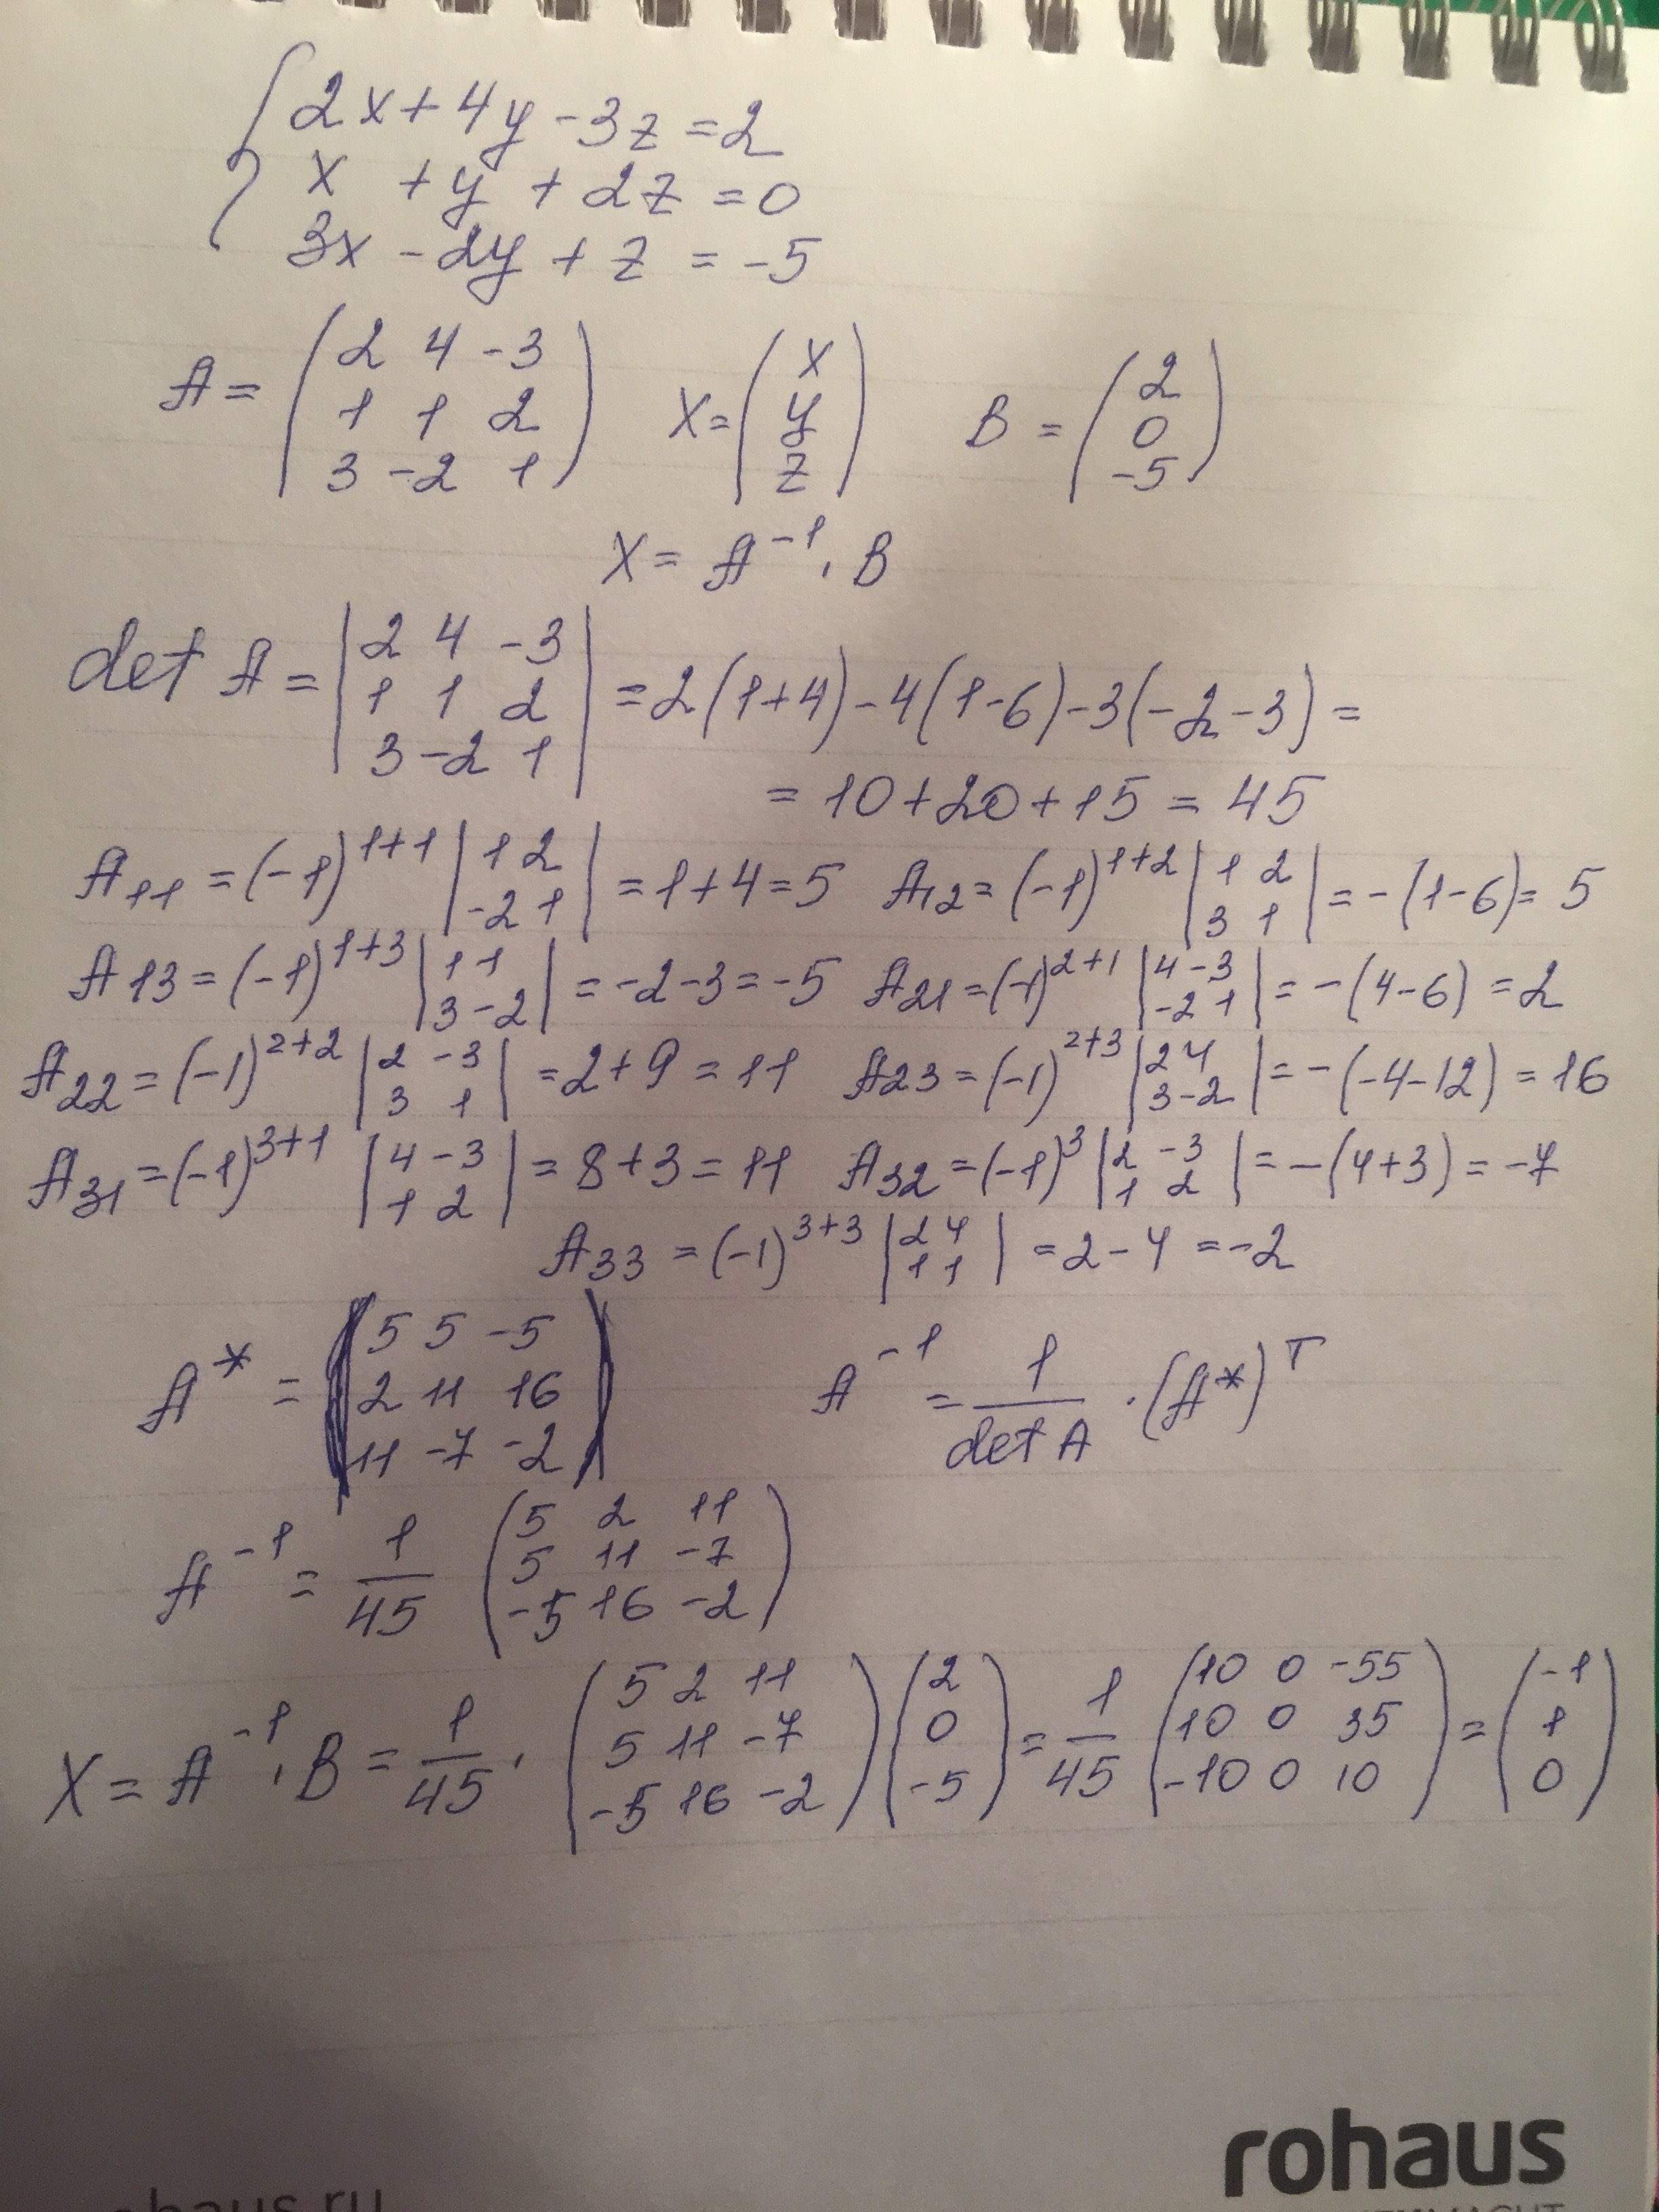 2x + 4y - 3z = 2
x + y + 2z = 0
3x - 2y + z = -5
A = (2 4 -3
1 1 2
3 -2 1) X = (x
y
z) B = (2
0
-5)
X = A⁻¹ · B
det A = |2 4 -3
1 1 2
3 -2 1| = 2(1+4) - 4(1-6) - 3(-2-3) =
= 10 + 20 + 15 = 45
A₁₁ = (-1)¹⁺¹ |1 2
-2 1| = 1 + 4 = 5 A₁₂ = (-1)¹⁺² |1 2
3 1| = -(1-6) = 5
A13 = (-1)¹⁺³ |1 1
3 -2| = -2 - 3 = -5 A₂₁ = (-1)²⁺¹ |4 -3
-2 1| = -(4-6) = 2
A₂₂ = (-1)²⁺² |2 -3
3 1| = 2 + 9 = 11 A₂₃ = (-1)²⁺³ |2 4
3 -2| = -(-4-12) = 16
A₃₁ = (-1)³⁺¹ |4 -3
1 2| = 8 + 3 = 11 A₃₂ = (-1)³ |2 -3
1 2| = -(4+3) = -7
A₃₃ = (-1)³⁺³ |2 4
1 1| = 2 - 4 = -2
A* = (5 5 -5
2 11 16
11 -7 -2) A⁻¹ = 1/det A · (A*)ᵀ
A⁻¹ = 1/45 (5 2 11
5 11 -7
-5 16 -2)
X = A⁻¹ · B = 1/45 · (5 2 11
5 11 -7
-5 16 -2) (2
0
-5) = 1/45 (10 0 -55
10 0 35
-10 0 10) = (-1
1
0)
rohaus